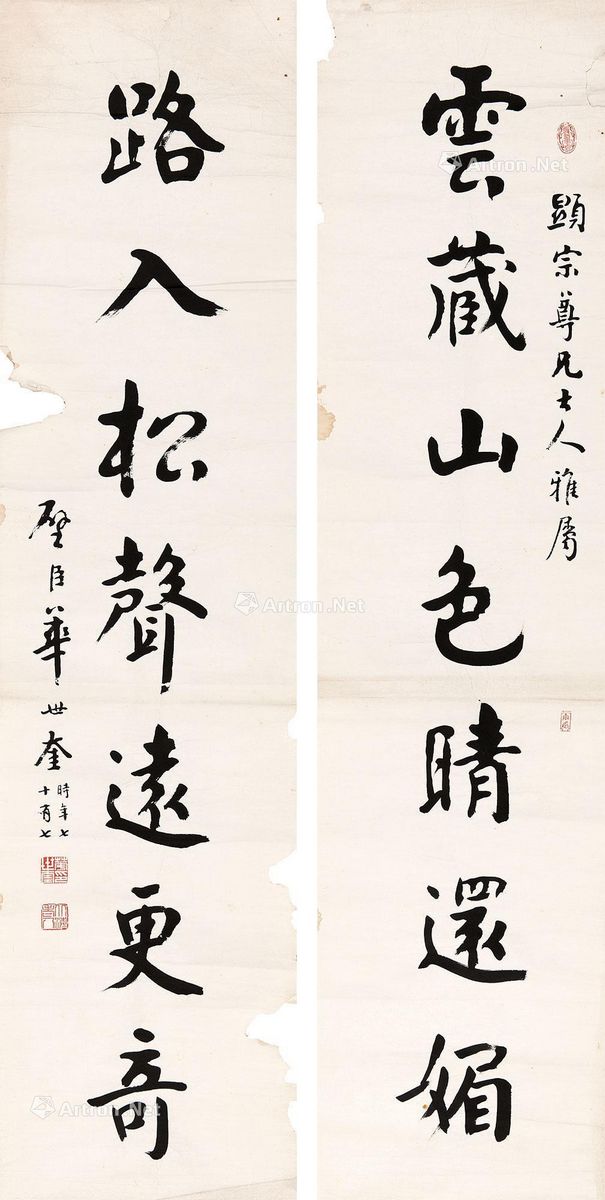 顕宗尊兄大人雅属
雲蔵山色晴還媚
路入松聲遠更奇
壁臣華世奎時年七
十有七
Artron.Net
Artron.Net
Artron.Net
Artron.Net